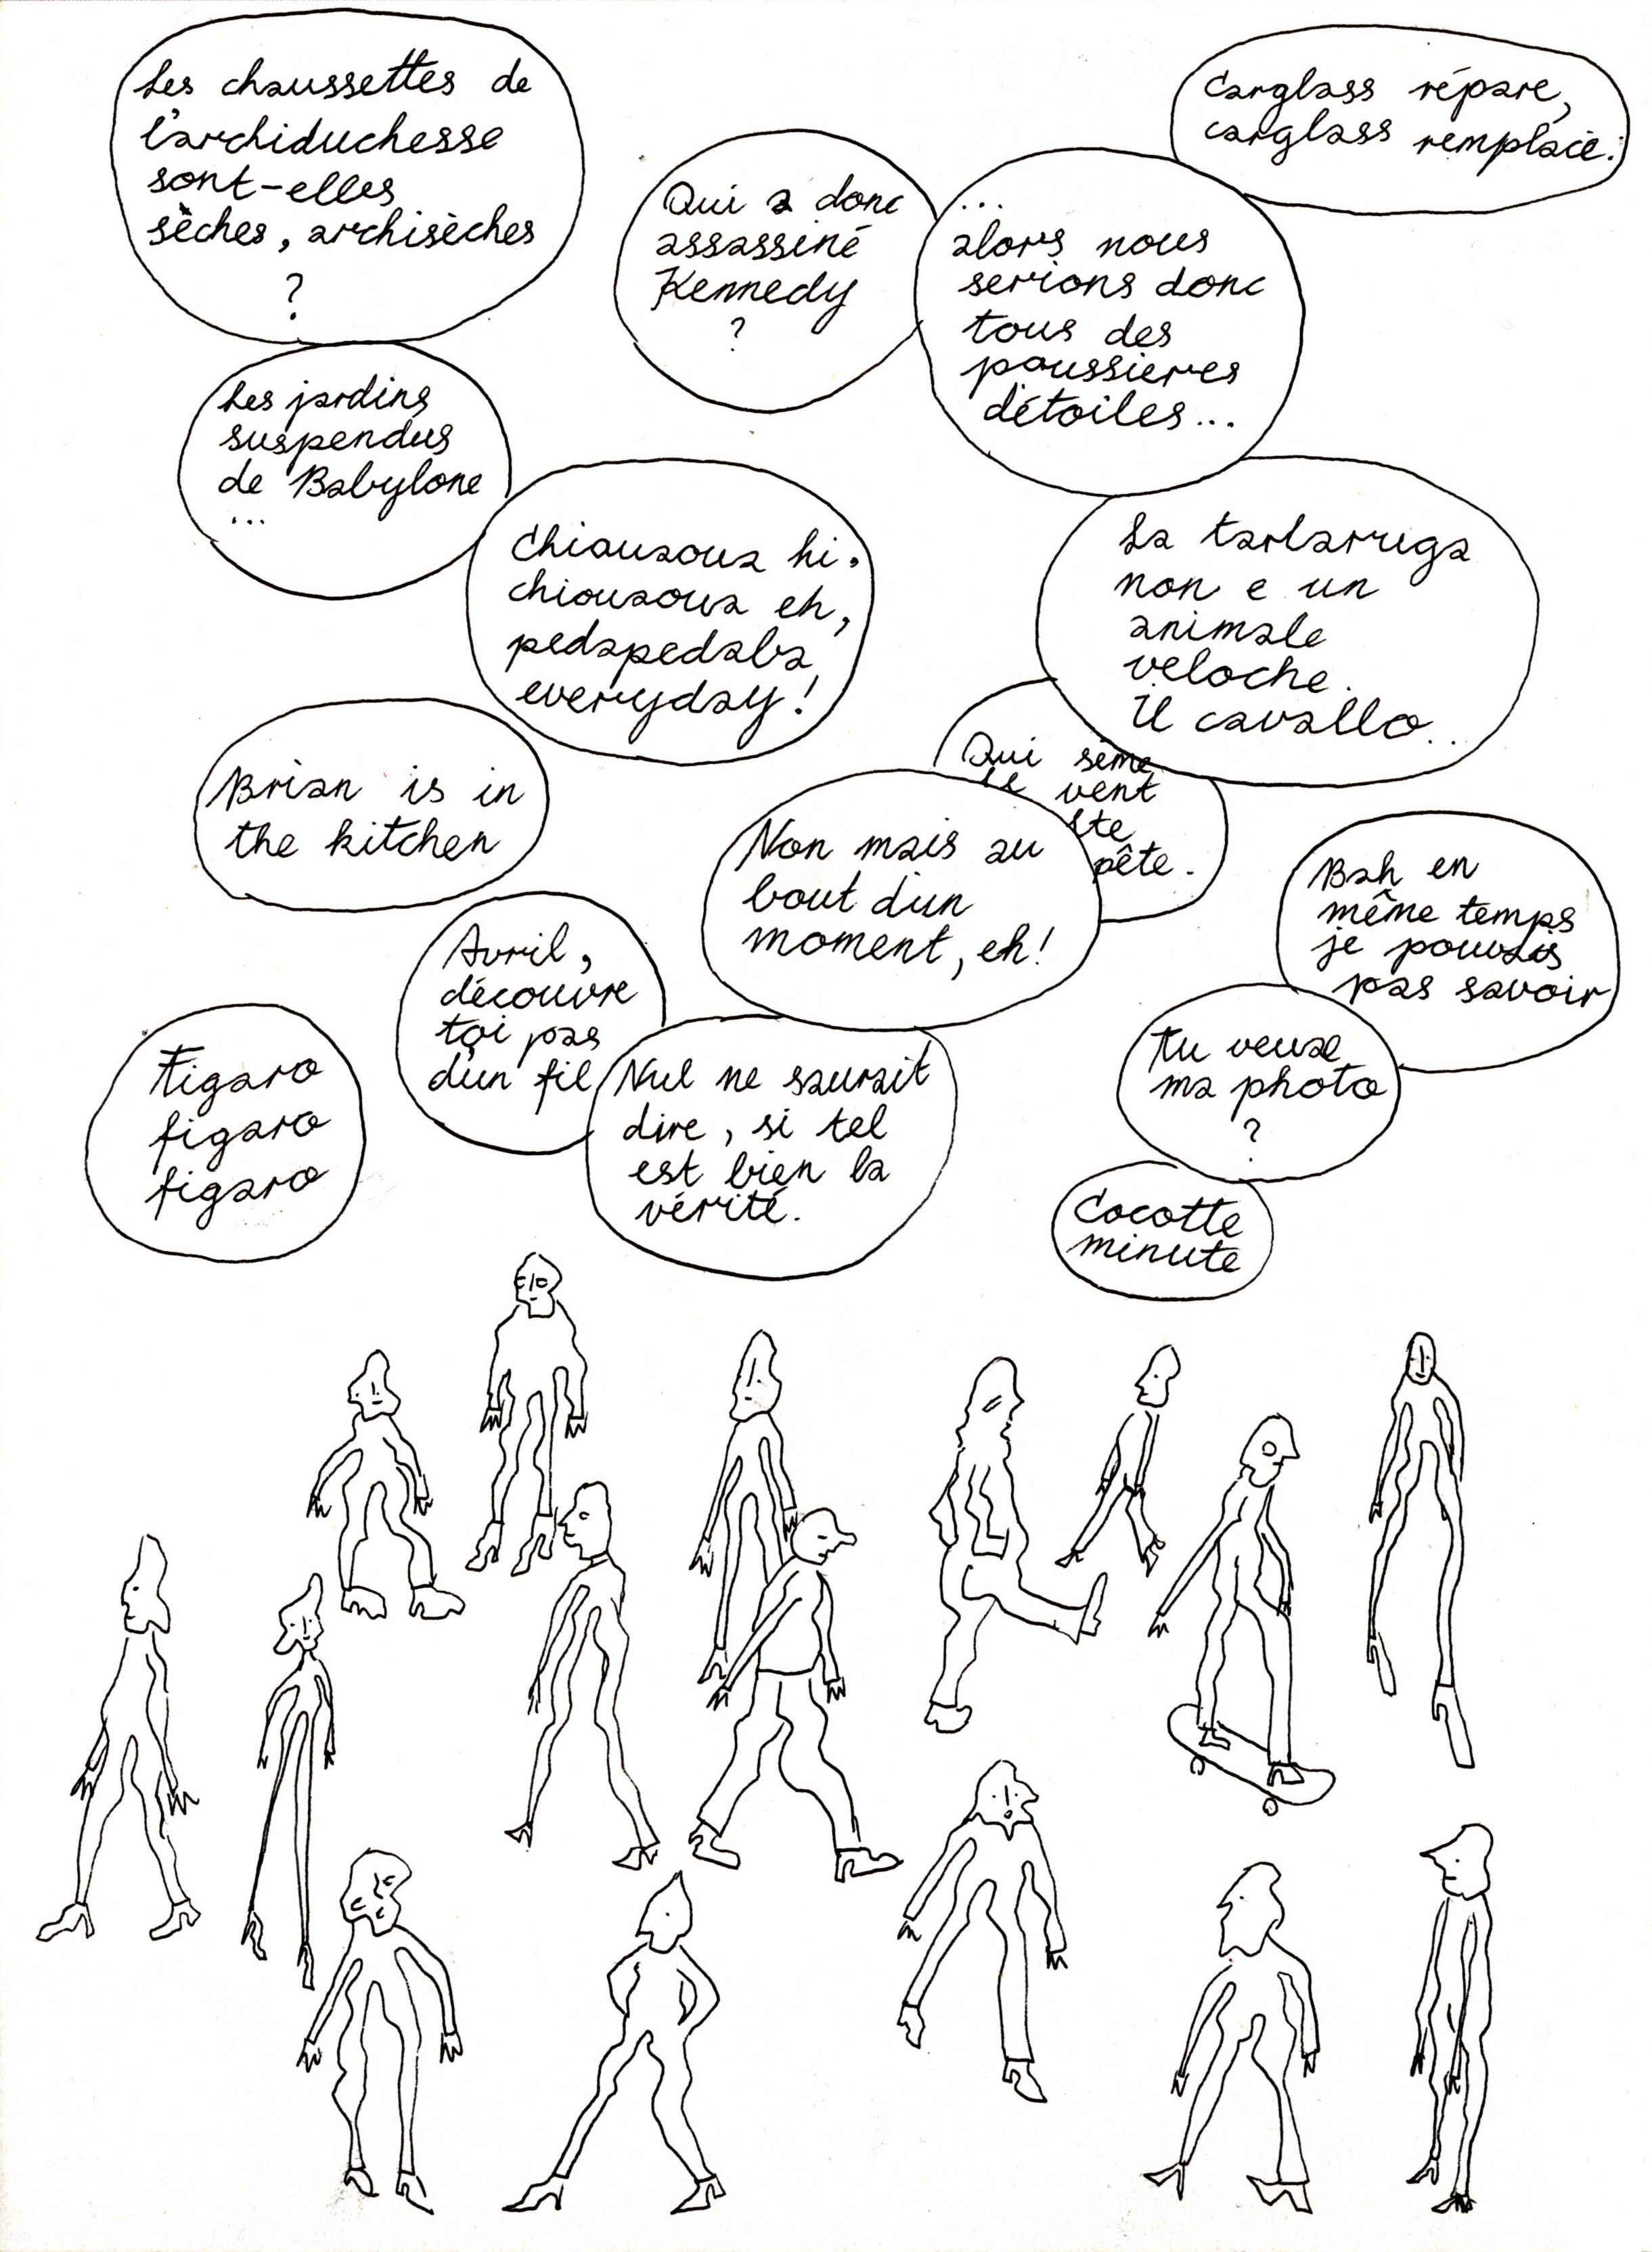 Les chaussettes de
l'archiduchesse
sont-elles
sèches, archisèches
?
Carglass répare,
carglass remplace.
Qui a donc
assassiné
Kennedy
?
...
alors nous
serions donc
tous des
poussieres
d'étoiles...
Les jardins
suspendus
de Babylone
...
Chiouaoua hi,
chiouaoua eh,
pedapedala
everyday!
La tartaruga
non e un
animale
veloche.
Il cavallo..
Qui sème
le vent
pête.
Brian is in
the kitchen
Non mais au
bout d'un
moment, eh!
Bah en
même temps
je pouvais
pas savoir
Avril,
découvre
toi pas
d'un fil
Tu veux
ma photo
?
Figaro
figaro
figaro
Nul ne saurait
dire, si tel
est bien la
vérité.
Cocotte
minute